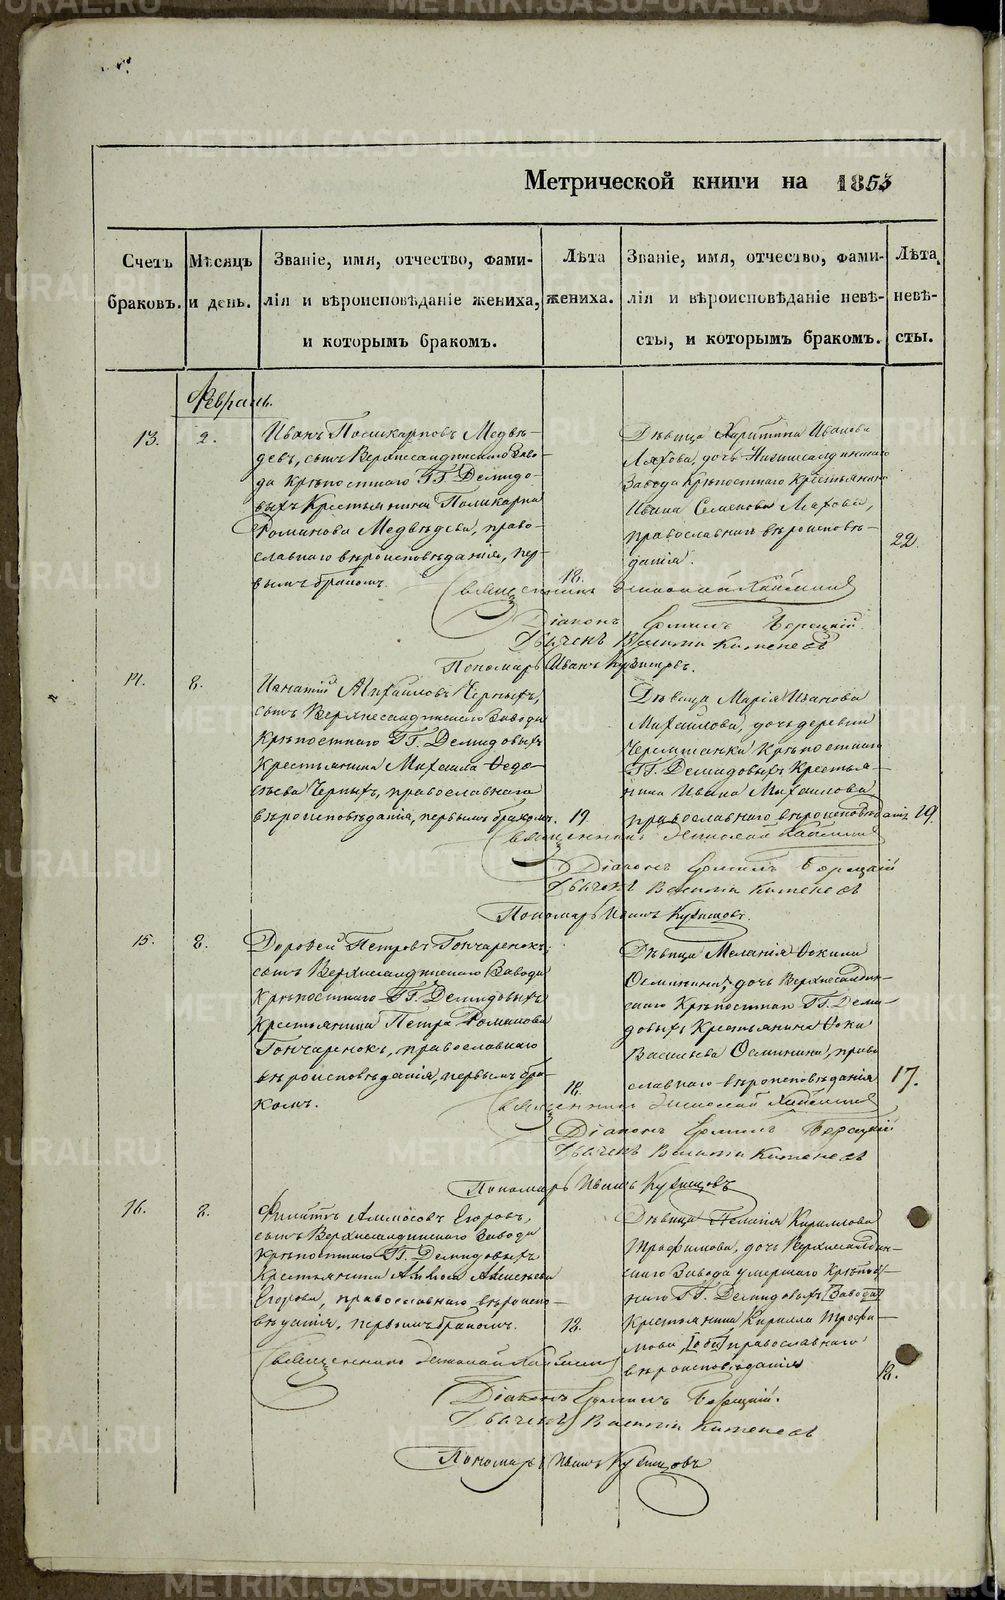 Метрической книги на 1853
Счетъ браковъ.
Мѣсяцъ и день.
Званіе, имя, отчество, фами-
лія и вѣроисповѣданіе жениха,
и которымъ бракомъ.
Лѣта жениха.
Званіе, имя, отчество, фами-
лія и вѣроисповѣданіе невѣ-
сты, и которымъ бракомъ.
Лѣта невѣ-
сты.
Февраль.
13.
2.
Иванъ Поликарповъ Медвѣ-
девъ, сынъ Верхнесалдинскаго Заво-
да Крѣпостнаго ГГ. Демидо-
выхъ Крестьянина Поликарпа
Романова Медвѣдева, право-
славнаго вѣроисповѣданія, пер-
вымъ бракомъ.
18.
Дѣвица Харитина Иванова
Ляхова, дочь Нижнесалдинскаго
Завода Крѣпостнаго Крестьянина
Ивана Семенова Ляхова,
православнаго вѣроисповѣ-
данія.
22.
Священникъ
Діаконъ
Дьячекъ Василій
Пономарь Иванъ Кузнецовъ.
14.
8.
Игнатій Михаиловъ Черныхъ,
сынъ Верхнесалдинскаго Завода
Крѣпостнаго ГГ. Демидовыхъ
Крестьянина Михаила Ѳедо-
сѣева Черныхъ, православнаго
вѣроисповѣданія, первымъ бракомъ.
19.
Дѣвица Марія Иванова
Михайлова, дочь деревни
Черемшанки Крѣпостнаго
ГГ. Демидовыхъ Крестья-
нина Ивана Михаилова
православнаго вѣроисповѣданія
19.
Священникъ
Діаконъ
Дьячекъ Василій
Пономарь Иванъ Кузнецовъ.
15.
8.
Дороѳей Петровъ Гончаренокъ,
сынъ Верхнесалдинскаго Завода
Крѣпостнаго ГГ. Демидовыхъ
Крестьянина Петра Романова
Гончаренокъ, православнаго
вѣроисповѣданія, первымъ бра-
комъ.
18.
Дѣвица Меланія Ѳокина
Осминина, дочь Верхнесалдин-
скаго Крѣпостнаго ГГ. Деми-
довыхъ Крестьянина Ѳоки
Васильева Осминина, право
славнаго вѣроисповѣданія
17.
Священникъ
Діаконъ
Дьячекъ Василій
Пономарь Иванъ Кузнецовъ
16.
8.
Филиппъ Аммосовъ Егоровъ,
сынъ Верхнесалдинскаго Завода
Крѣпостнаго ГГ. Демидовыхъ
Крестьянина Аммоса Алексѣева
Егорова, православнаго вѣроиспо-
вѣданія, первымъ бракомъ.
18.
Дѣвица Пелагія Кириллова
Трофимова, дочь Верхнесалдин-
скаго Завода умершаго Крѣпост-
наго ГГ. Демидовыхъ Завода
Крестьянина Кирилла Трофи-
мова, оба православнаго
вѣроисповѣданія
18.
Священникъ
Діаконъ
Дьячекъ Василій
Пономарь Иванъ Кузнецовъ
METRIKI.GASO-URAL.RU